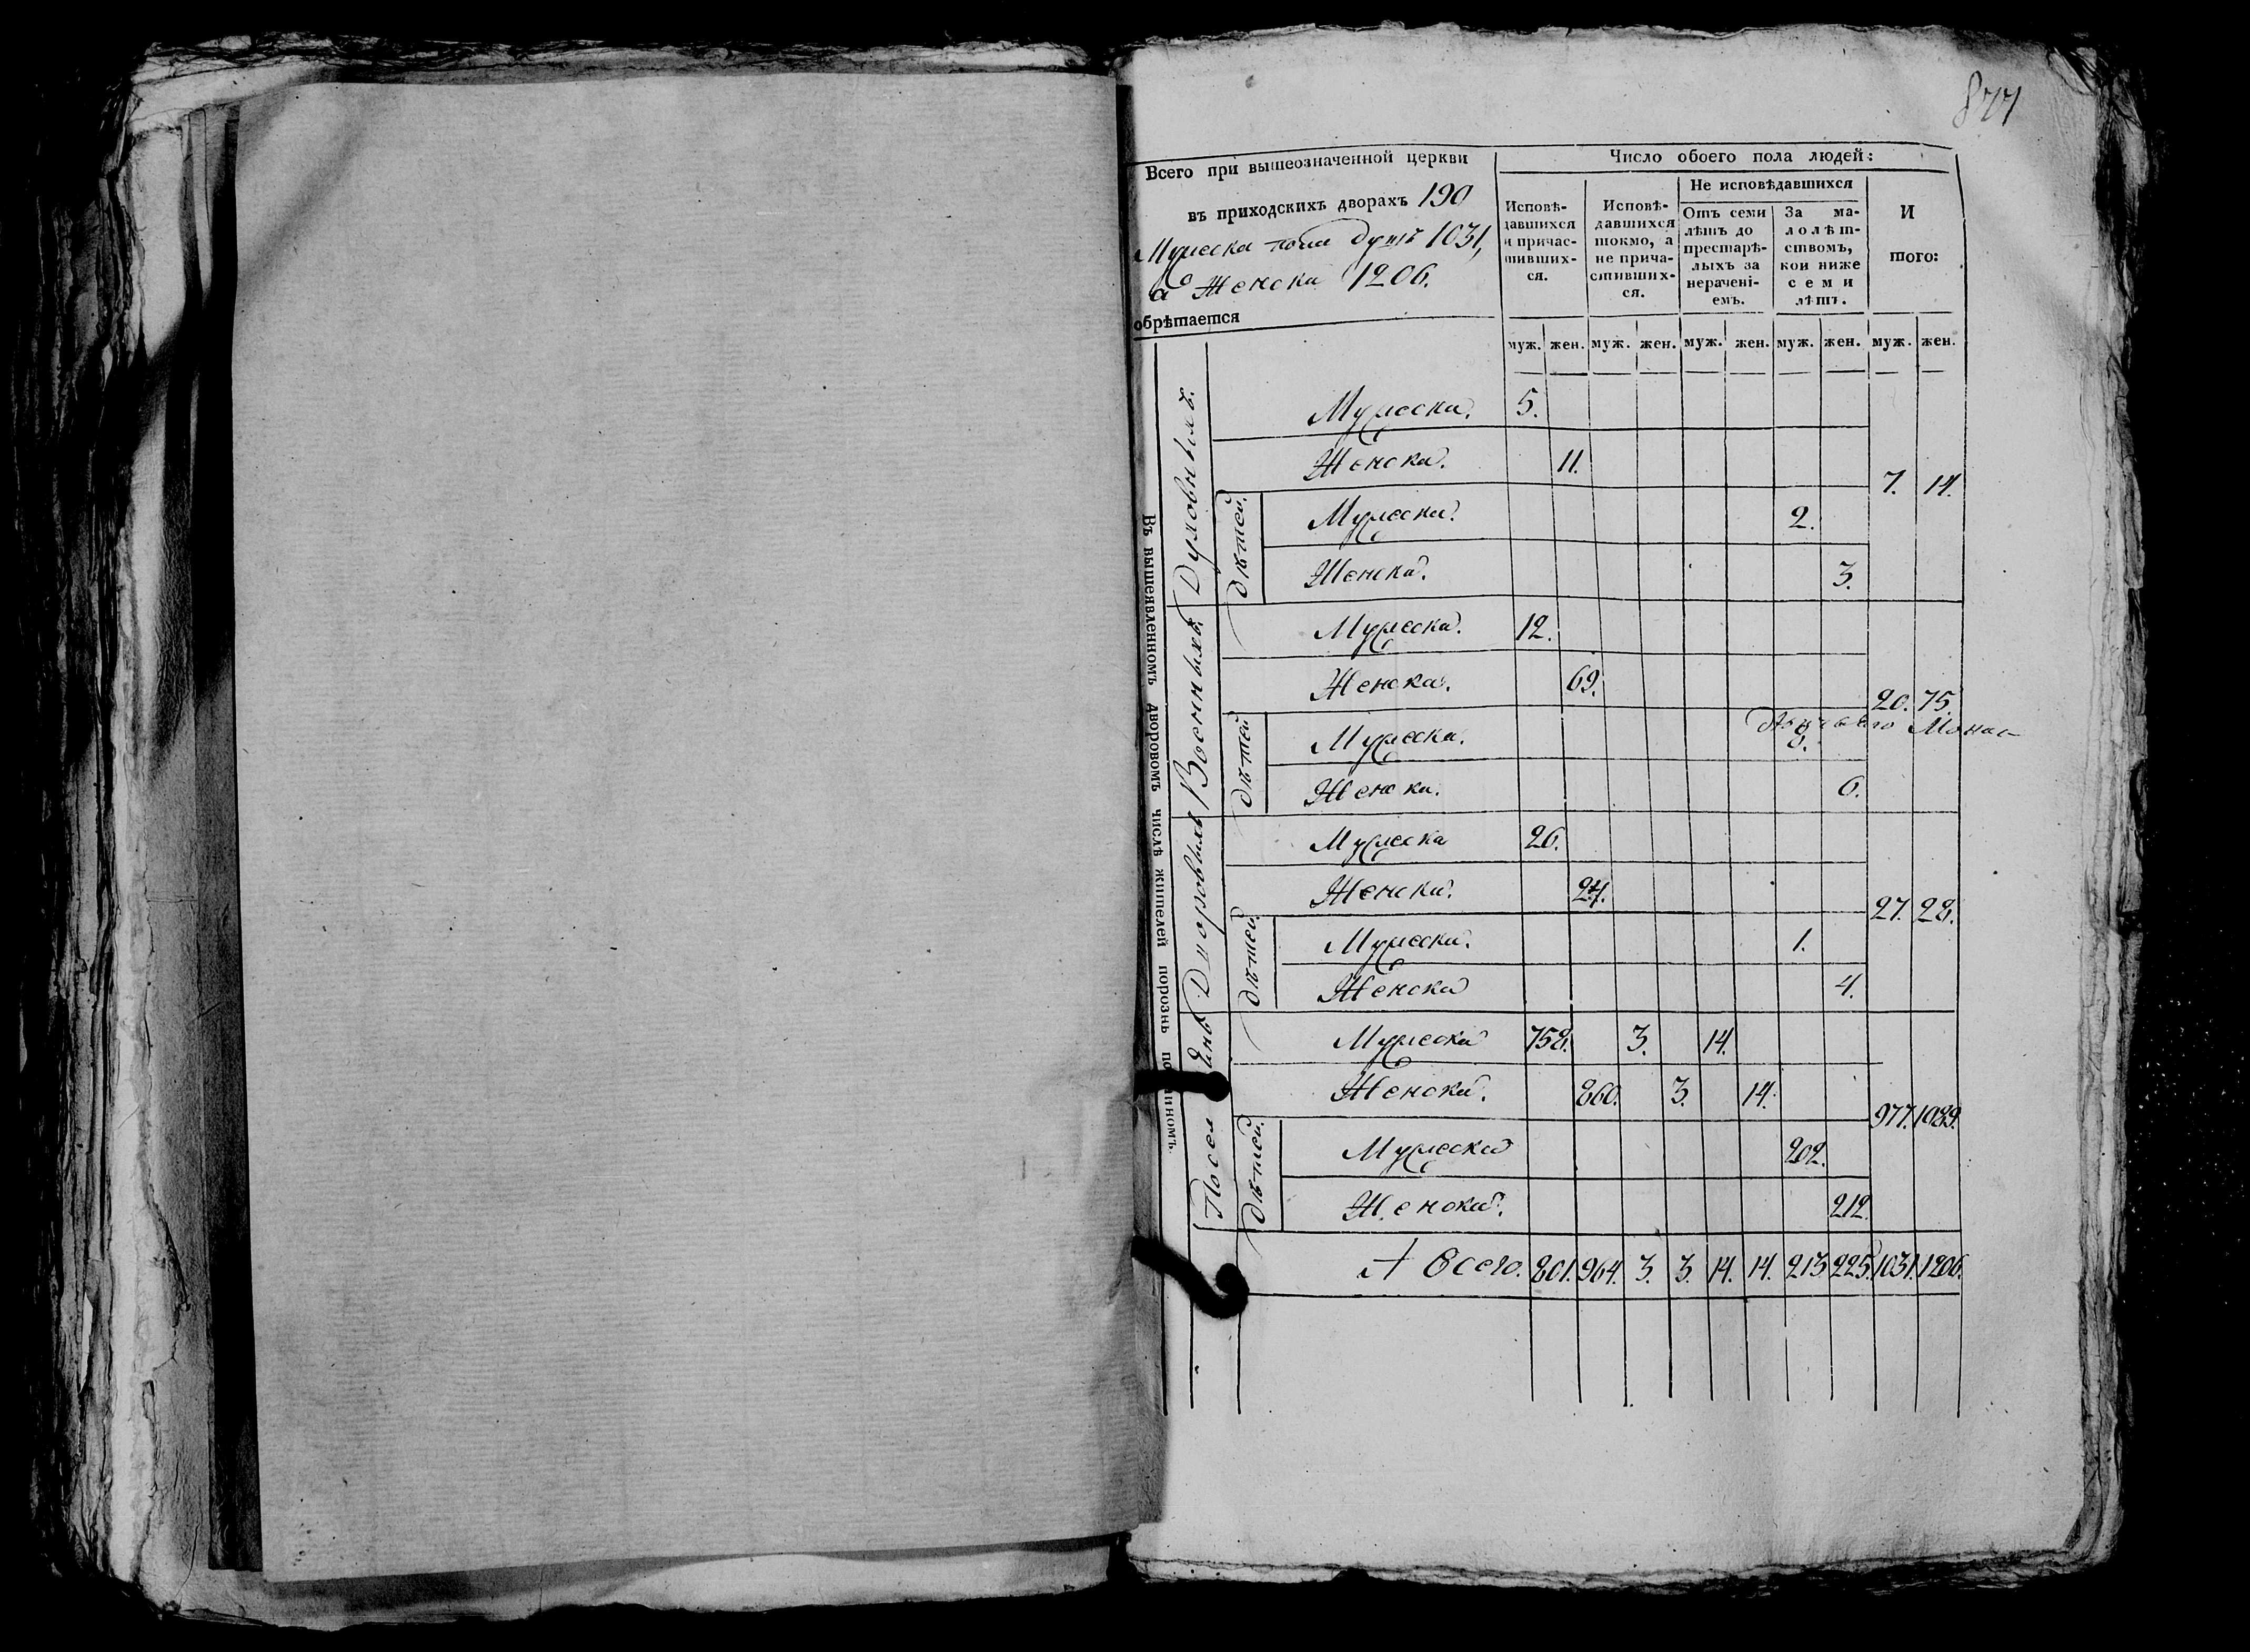 877
Всего при вышеозначенной церкви
въ приходскихъ дворахъ 190
Мужеска пола душъ 1031,
а Женска 1206.
обрѣтается
Число обоего пола людей:
Исповѣ-
давшихся
и причас-
тивших-
ся.
Исповѣ-
давшихся
токмо, а
не прича-
стивших-
ся.
Не исповѣдавшихся
Отъ семи
лѣтъ до
престарѣ-
лыхъ за
нерачені-
емъ.
За ма-
лолѣт-
ствомъ,
кои ниже
семи
лѣтъ.
И
того:
муж. жен. муж. жен. муж. жен. муж. жен. муж. жен.
Въ вышеявленномъ дворовомъ числѣ жителей порознь по чиномъ.
Духовныхъ.
Мужеска. 5.
Женска. 11.
7. 14.
дѣтей.
Мужеска. 2.
Женска. 3.
Военныхъ.
Мужеска. 12.
Женска. 69.
20. 75.
дѣтей
Мужеска. 8.
Монас-
Женска. 6.
Дворовыхъ
Мужеска 26.
Женска. 24.
27. 28.
дѣтей.
Мужеска. 1.
Женска 4.
Посел
Мужеска 758. 3. 14.
Женска. 860. 3. 14.
977. 1089.
дѣтей.
Мужеска 202.
Женска. 212.
А всего. 801. 964. 3. 3. 14. 14. 213 225. 1031. 1206.